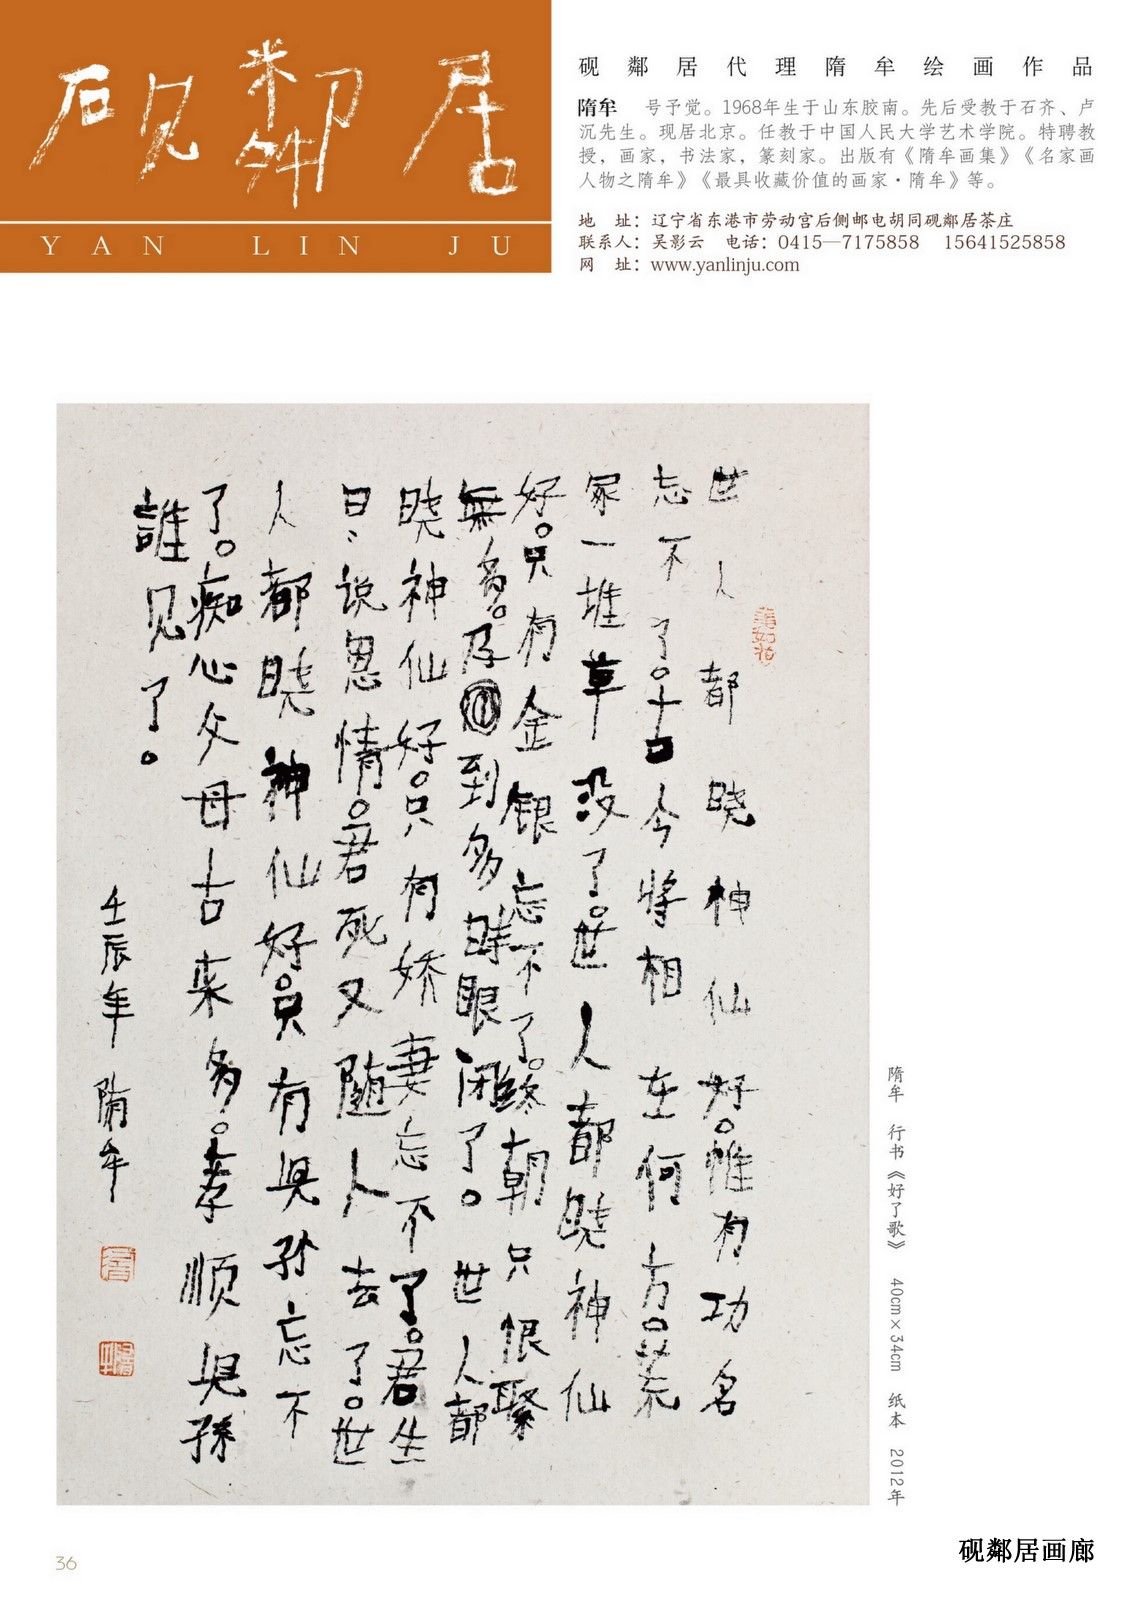 砚鄰居
YAN LIN JU
砚鄰居代理隋牟绘画作品
隋牟 号予觉。1968年生于山东胶南。先后受教于石齐、卢
沉先生。现居北京。任教于中国人民大学艺术学院。特聘教
授，画家，书法家，篆刻家。出版有《隋牟画集》《名家画
人物之隋牟》《最具收藏价值的画家·隋牟》等。
地 址：辽宁省东港市劳动宫后侧邮电胡同砚鄰居茶庄
联系人：吴影云 电话：0415—7175858 15641525858
网 址：www.yanlinju.com
世人都晓神仙好。惟有功名
忘不了。古今将相在何方。荒
冢一堆草没了。世人都晓神仙
好。只有金银忘不了。终朝只恨聚
無多。及到多時眼闭了。世人都
晓神仙好。只有娇妻忘不了。君生
日〻说恩情。君死又随人去了。世
人都晓神仙好。只有児孙忘不
了。痴心父母古来多。孝顺児孫
誰见了。
壬辰年 隋牟
隋牟 行书《好了歌》 40cm×34cm 纸本 2012年
砚鄰居画廊
36